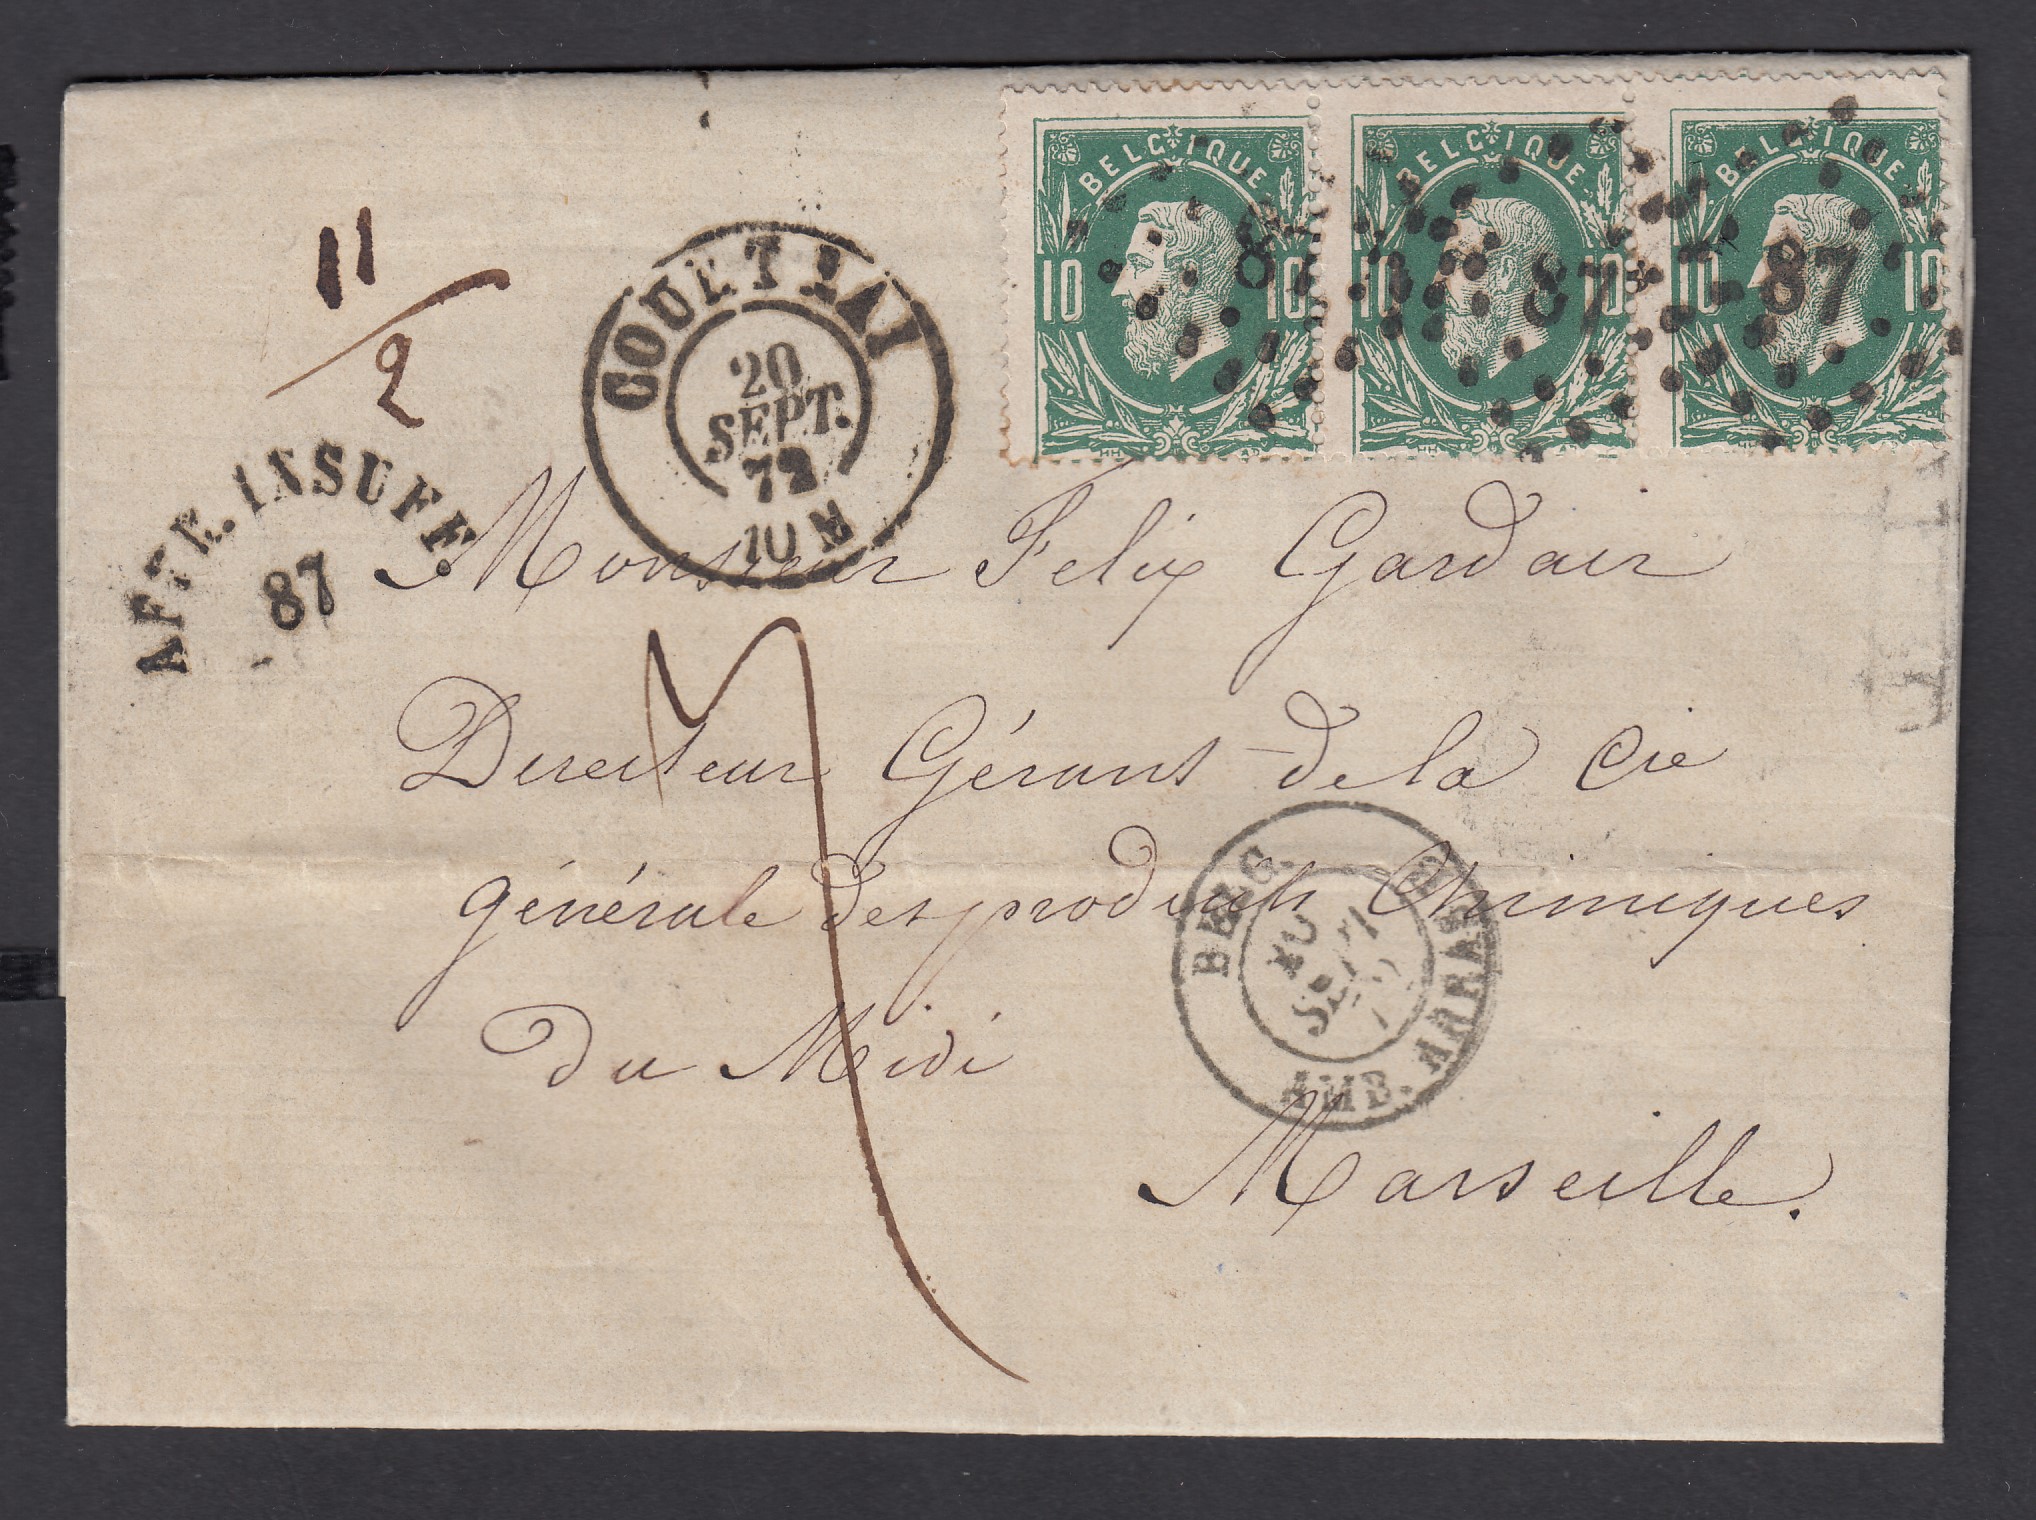 BELGIQUE BELGIQUE BELGIQUE
10 10 10 10 10 10
87 87 87
11/2
COURTRAI
20
SEPT.
72
10 M
AFFR. INSUFF.
87
Monsieur Felix Gardair
7
Directeur Gérant de la Cie
générale des produits Chimiques
du Midi
Marseille.
BELG.
20
SEPT
AMB. ARRAS